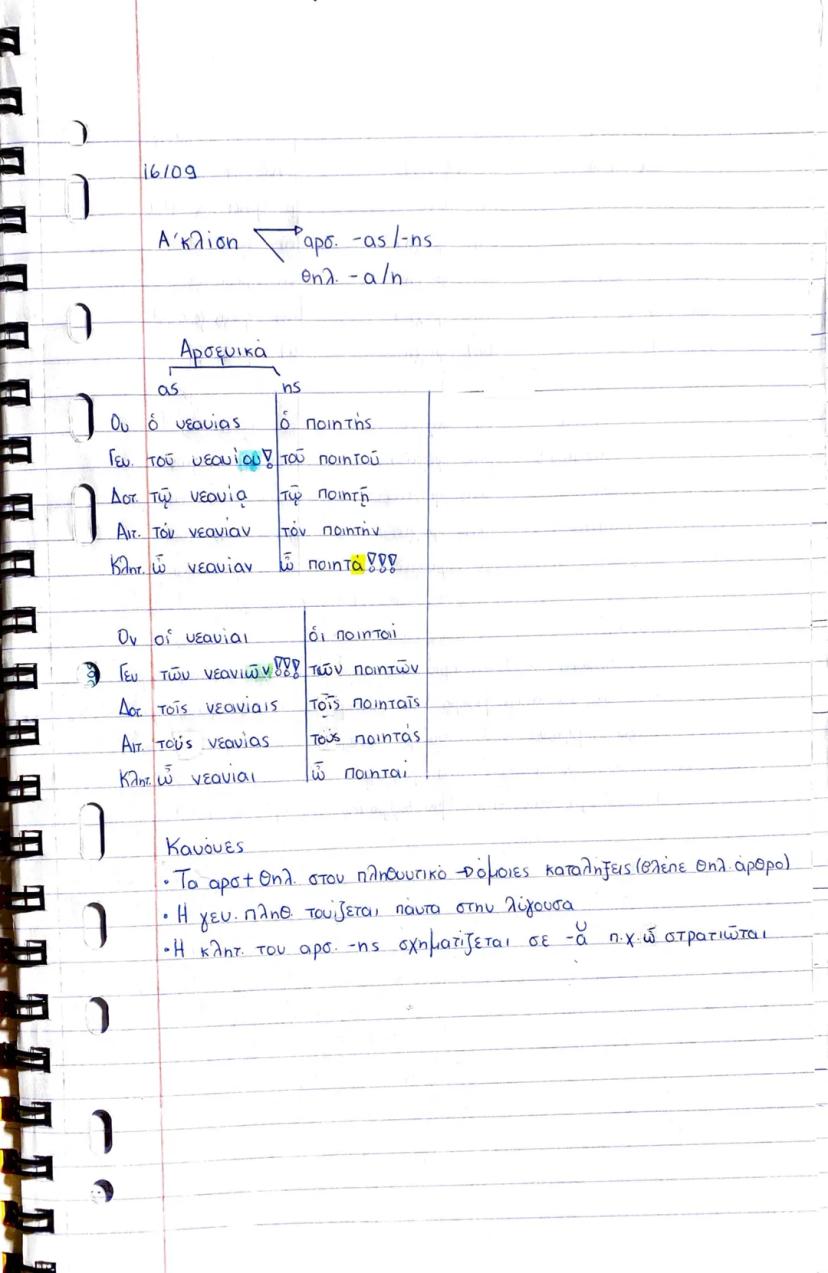 16/09
Α΄κλίση αρσ. -ας/-ης
θηλ. -α/η
Αρσενικά
ας ης
Ον ὁ νεανίας ὁ ποιητής
Γεν. τοῦ νεανίου! τοῦ ποιητοῦ
Δοτ. τῷ νεανίᾳ τῷ ποιητῇ
Αιτ. τόν νεανίαν τόν ποιητήν
Κλητ. ὦ νεανίαν ὦ ποιητά!!!
Ον οἱ νεανίαι ὁι ποιηταί
Γεν τῶν νεανιῶν!!! τῶν ποιητῶν
Δοτ. τοῖς νεανίαις τοῖς ποιηταῖς
Αιτ. τούς νεανίας τούς ποιητάς
Κλητ. ὦ νεανίαι ὦ ποιηταί
Κανόνες
• Τα αρσ + θηλ. στον πληθυντικό → όμοιες καταλήξεις (βλέπε θηλ. άρθρο)
• Η γεν. πληθ. τονίζεται πάντα στην λήγουσα
• Η κλητ. του αρσ. -ης σχηματίζεται σε -ᾰ π.χ. ὦ στρατιῶται